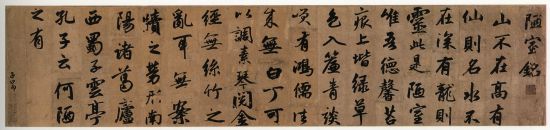 陋室銘
山不在高有
仙則名水不
在深有龍則
靈此是陋室
惟吾德馨苔
痕上堦綠草
色入簾青談
笑有鴻儒往
来無白丁可
以調素琴閱金
經無絲竹之
亂耳無案
牘之勞形南
陽諸葛廬
西蜀子雲亭
孔子云何陋
之有
子昂